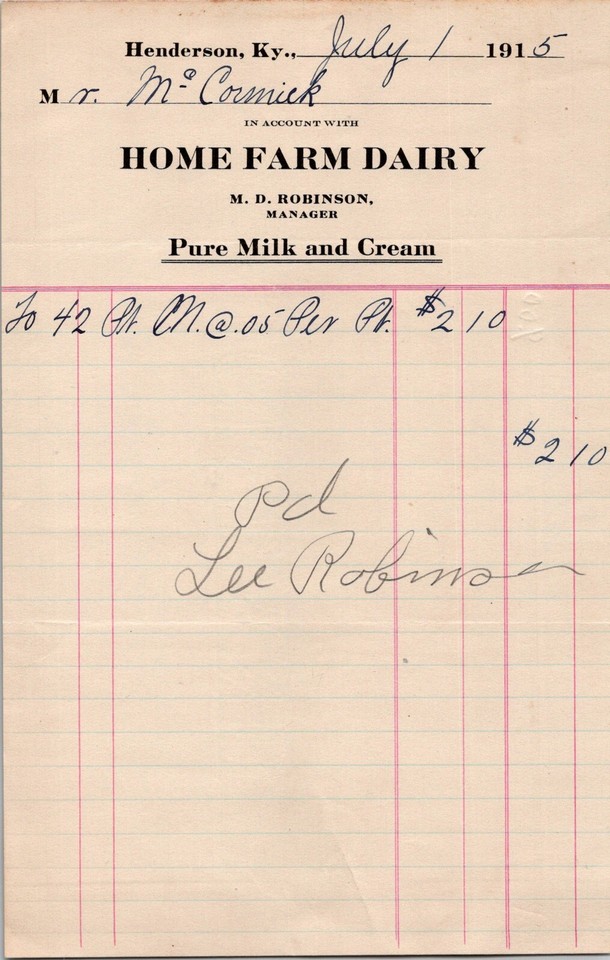 Henderson, Ky., July 1 1915
Mr. McCormick
IN ACCOUNT WITH
HOME FARM DAIRY
M. D. ROBINSON,
MANAGER
Pure Milk and Cream
To 42 Pt. M. @ .05 Per Pt. $2 10
$2 10
Pd
Lee Robinson